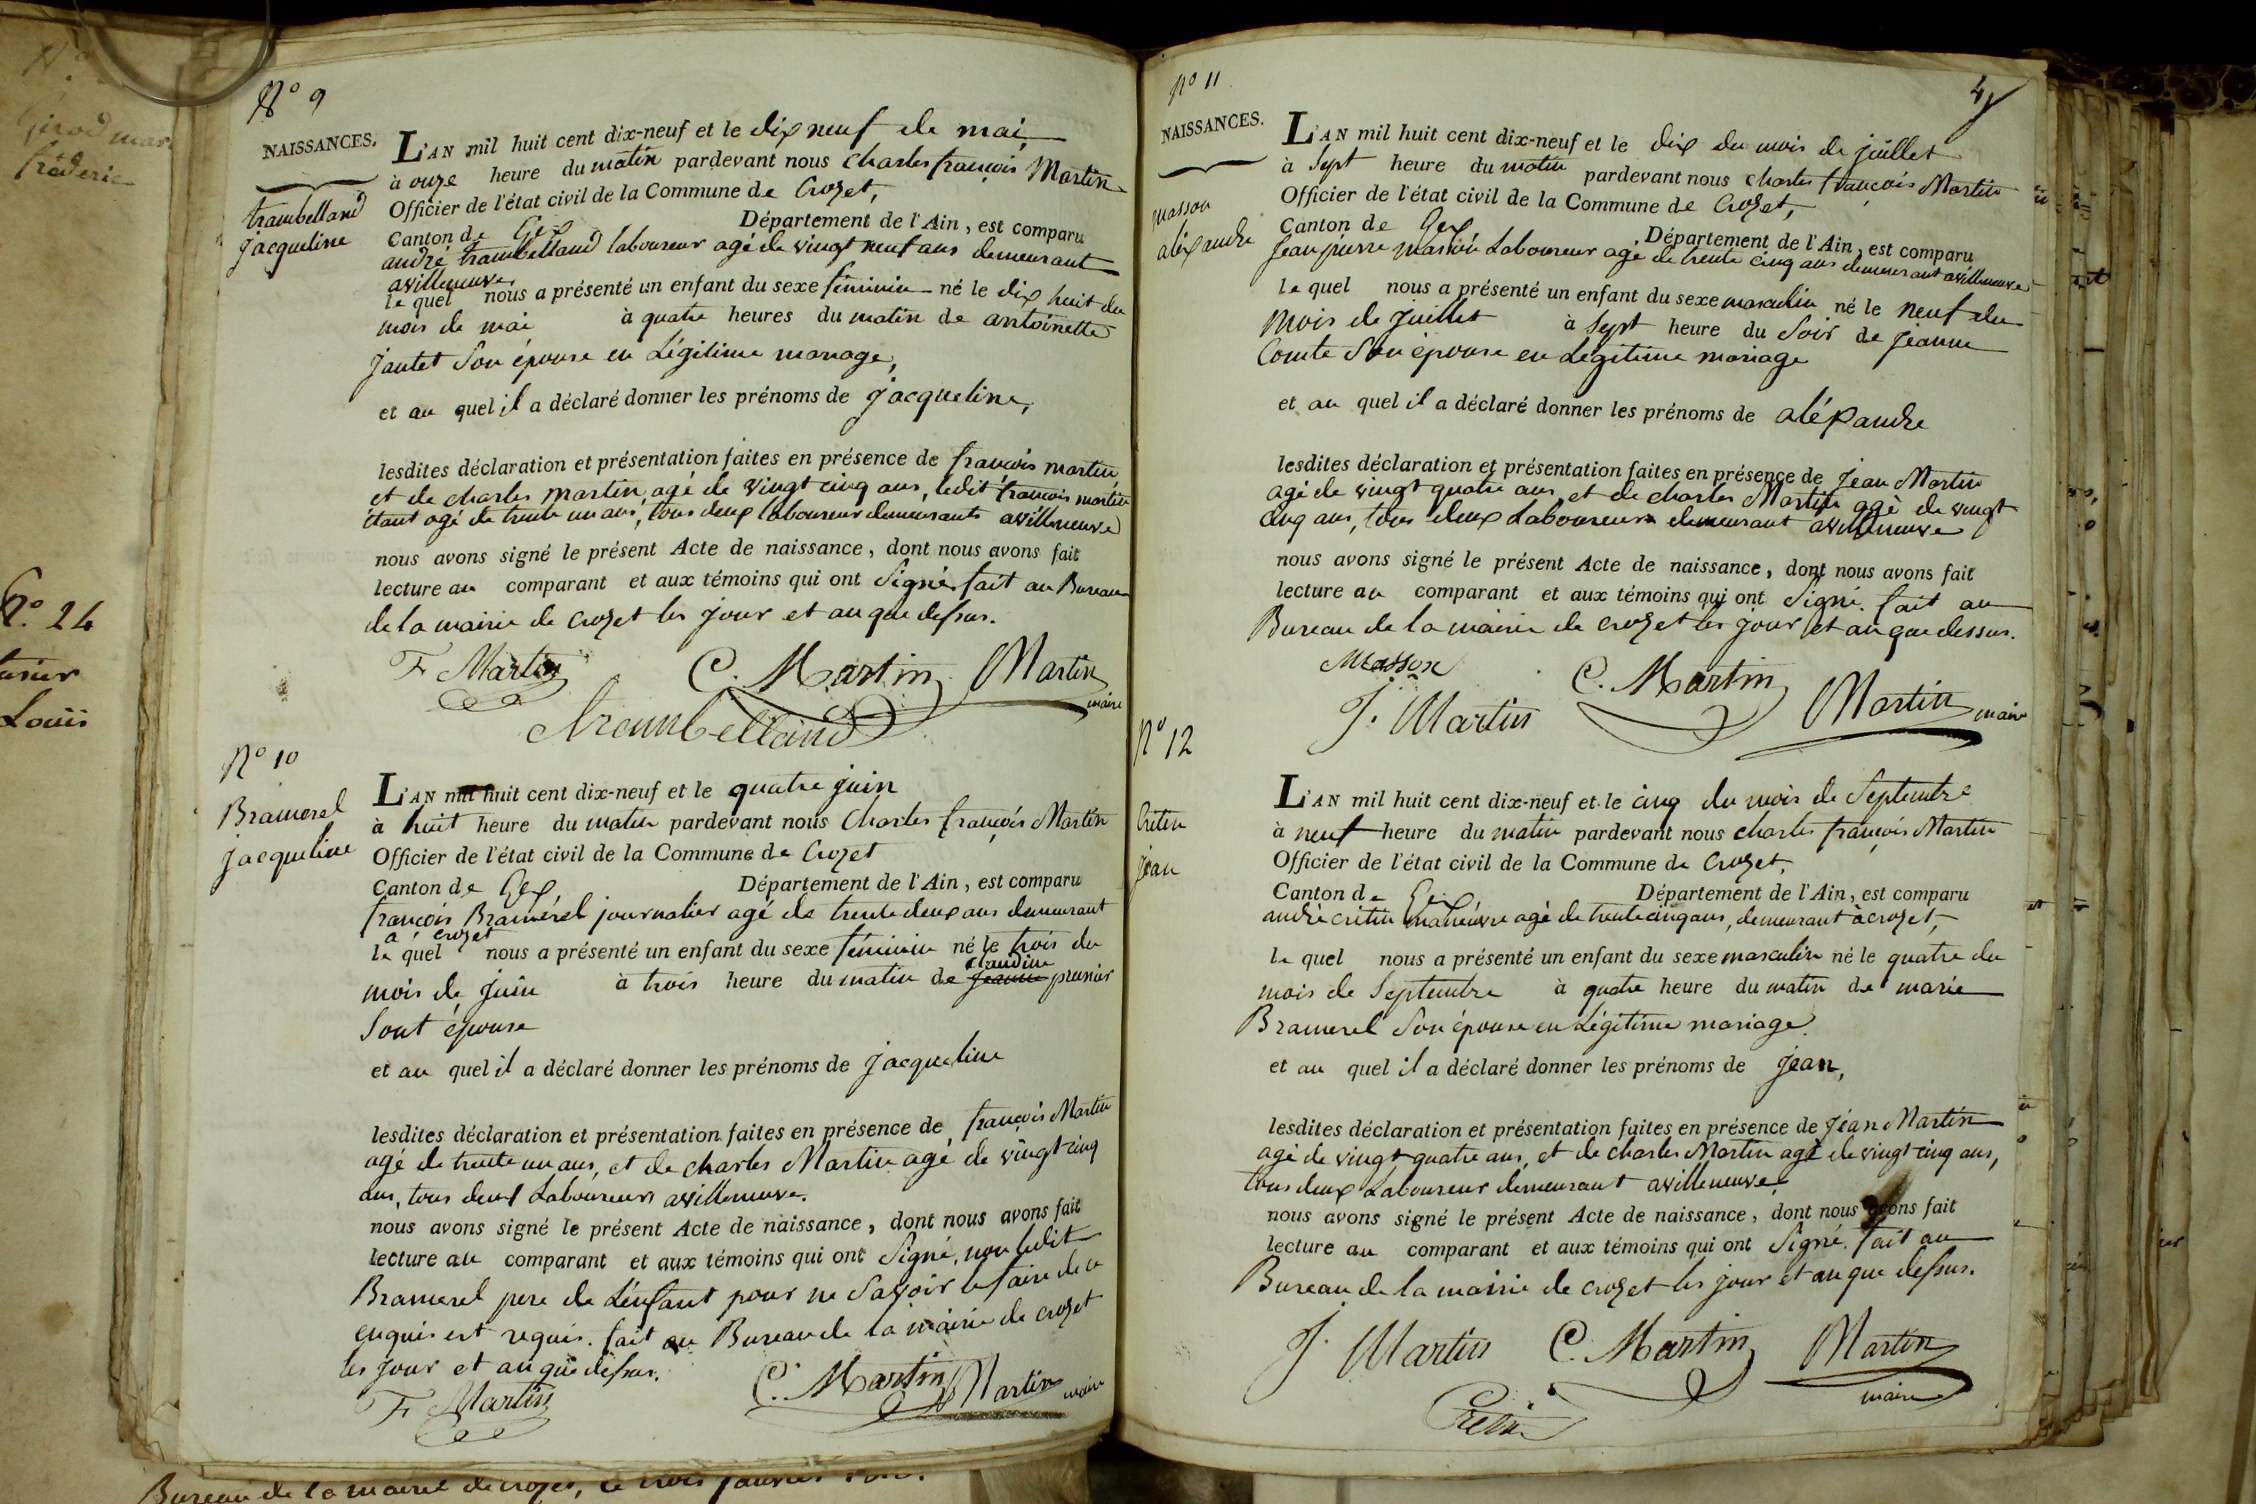 N° 9
NAISSANCES.
trambelland
jacqueline
L'AN mil huit cent dix-neuf et le dix neuf de mai,
à onze heure du matin pardevant nous charles françois Martin
Officier de l'état civil de la Commune de Crozet,
Canton de Gex Département de l'Ain, est comparu
andré trambelland laboureur agé de vingt neuf ans demeurant
avilleneuve
le quel nous a présenté un enfant du sexe féminin né le dix huit du
mois de mai à quatre heures du matin de antoinette
jantet Son épouse en Légitime mariage,
et au quel il a déclaré donner les prénoms de jacqueline,
lesdites déclaration et présentation faites en présence de françois martin
et de charles martin, agé de vingt cinq ans, ledit françois martin
étant agé de trente un ans, tous deux laboureur demeurants avilleneuve
nous avons signé le présent Acte de naissance, dont nous avons fait
lecture au comparant et aux témoins qui ont Signé fait au Bureau
de la mairie de crozet les jour et an que dessus.
F Martin C. Martin Martin
maire
trambelland
N° 10
Bramerel
jacqueline
L'AN mil huit cent dix-neuf et le quatre juin
à huit heure du matin pardevant nous Charles françois Martin
Officier de l'état civil de la Commune de Crozet
Canton de Gex Département de l'Ain, est comparu
françois Bramérel journalier agé de trente deux ans demeurant
a crozet
le quel nous a présenté un enfant du sexe féminin né le trois du
claudine
mois de juin à trois heure du matin de jeanne prunier
Sont épouse
et au quel il a déclaré donner les prénoms de jacqueline
lesdites déclaration et présentation faites en présence de françois Martin
agé de trente un ans, et de charles Martin agé de vingt cinq
ans, tous deux Laboureurs avilleneuve.
nous avons signé le présent Acte de naissance, dont nous avons fait
lecture au comparant et aux témoins qui ont Signé, non ledit
Bramerel pere de L'enfant pour ne Savoir le faire de ce
enquis est requis. fait au Bureau de la mairie de crozet
les jour et an que dessus.
F Martin C. Martin Martin maire
N° 11
4
NAISSANCES.
masson
aléxandre
L'AN mil huit cent dix-neuf et le dix du mois de juillet
à Sept heure du matin pardevant nous charles françois Martin
Officier de l'état civil de la Commune de Crozet,
Canton de Gex Département de l'Ain, est comparu
Jean pierre masson Laboureur agé de trente cinq ans demeurant avilleneuve
le quel nous a présenté un enfant du sexe masculin né le neuf du
Mois de juillet à Sept heure du Soir de jeanne
Comte Son épouse en Légitime mariage
et au quel il a déclaré donner les prénoms de aléxandre
lesdites déclaration et présentation faites en présence de Jean Martin
agé de vingt quatre ans, et de charles Martin agé de vingt
cinq ans, tous deux Laboureurs demeurant avilleneuve
nous avons signé le présent Acte de naissance, dont nous avons fait
lecture au comparant et aux témoins qui ont Signé. fait au
Bureau de la mairie de crozet les jour et an que dessus.
Masson C. Martin
J. Martin Martin maire
N° 12
Critin
jean
L'AN mil huit cent dix-neuf et le cinq du mois de Septembre
à neuf heure du matin pardevant nous charles françois Martin
Officier de l'état civil de la Commune de Crozet,
Canton de Gex Département de l'Ain, est comparu
andré critin maneuvre agé de trente cinq ans, demeurant à crozet,
le quel nous a présenté un enfant du sexe masculin né le quatre du
mois de Septembre à quatre heure du matin de marie
Bramerel Son épouse en Légitime mariage.
et au quel il a déclaré donner les prénoms de jean,
lesdites déclaration et présentation faites en présence de jean Martin
agé de vingt quatre ans, et de charles Martin agé de vingt cinq ans,
tous deux Laboureur demeurant avilleneuve
nous avons signé le présent Acte de naissance, dont nous avons fait
lecture au comparant et aux témoins qui ont Signé. fait au
Bureau de la mairie de crozet les jour et an que dessus.
J. Martin C. Martin Martin
maire
Cretin
N°. 24
Louis
Bureau de la mairie de crozet, le trois janvier